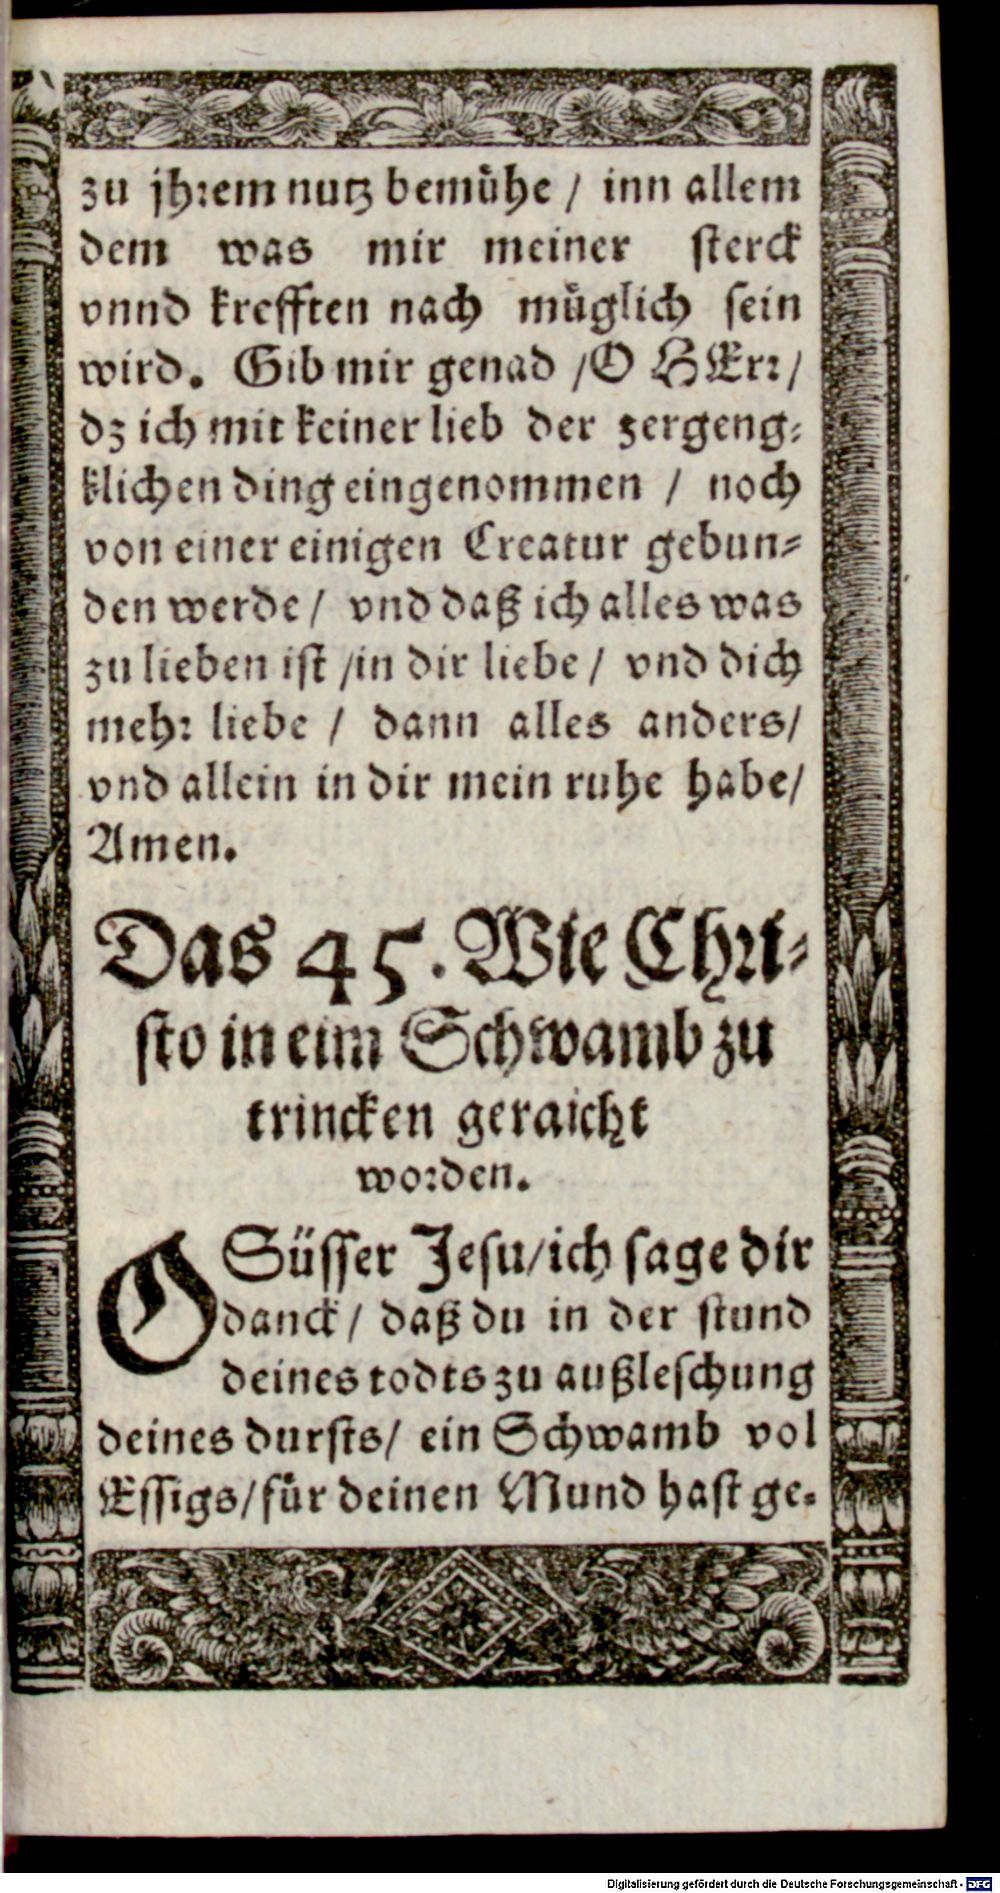 zu jhrem nutz bemühe / inn allem
dem was mir meiner sterck
vnnd krefften nach müglich sein
wird. Gib mir genad / O HErr /
dz ich mit keiner lieb der zergeng-
klichen ding eingenommen / noch
von einer einigen Creatur gebun-
den werde / vnd daß ich alles was
zu lieben ist / in dir liebe / vnd dich
mehr liebe / dann alles anders /
vnd allein in dir mein ruhe habe /
Amen.
Das 45. Wie Chri-
sto in eim Schwamb zu
trincken geraicht
worden.
O Süsser Jesu / ich sage dir
danck / daß du in der stund
deines todts zu außleschung
deines dursts / ein Schwamb vol
Essigs / für deinen Mund hast ge-
Digitalisierung gefördert durch die Deutsche Forschungsgemeinschaft - DFG